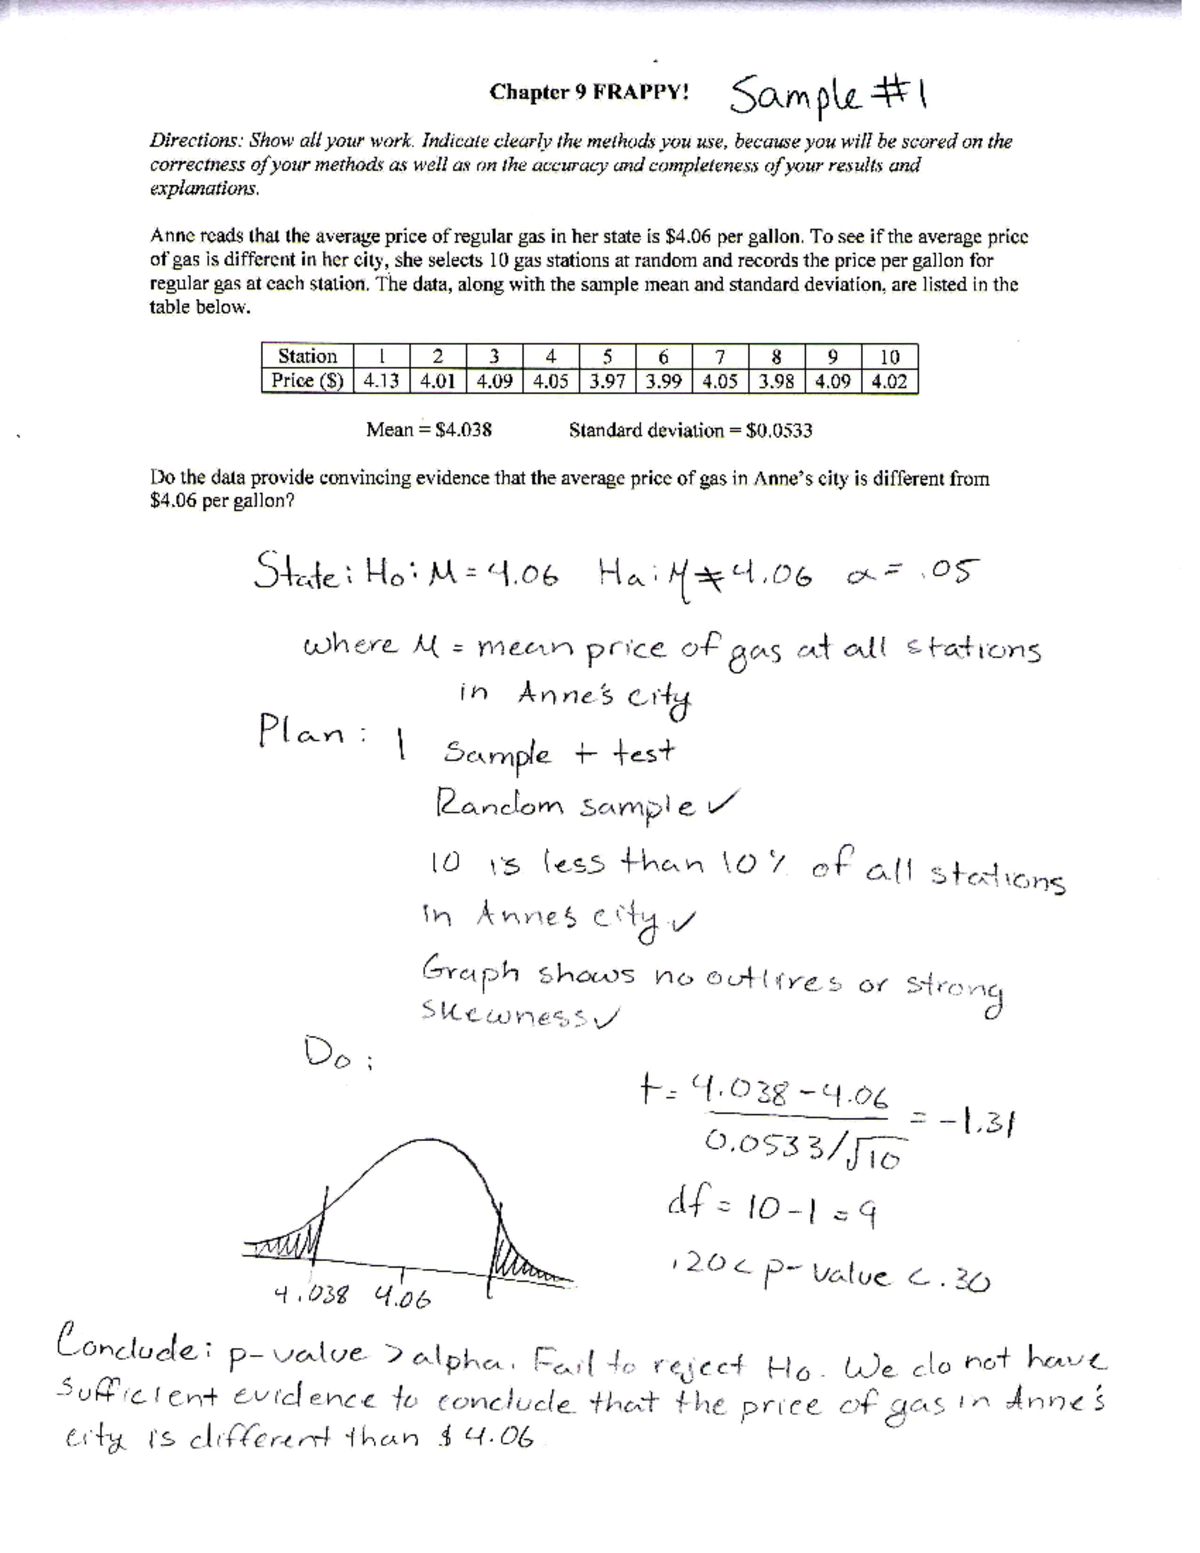 Chapter 9 FRAPPY! Sample #1
Directions: Show all your work. Indicate clearly the methods you use, because you will be scored on the
correctness of your methods as well as on the accuracy and completeness of your results and
explanations.
Anne reads that the average price of regular gas in her state is $4.06 per gallon. To see if the average price
of gas is different in her city, she selects 10 gas stations at random and records the price per gallon for
regular gas at each station. The data, along with the sample mean and standard deviation, are listed in the
table below.
Station 1 2 3 4 5 6 7 8 9 10
Price ($) 4.13 4.01 4.09 4.05 3.97 3.99 4.05 3.98 4.09 4.02
Mean = $4.038 Standard deviation = $0.0533
Do the data provide convincing evidence that the average price of gas in Anne's city is different from
$4.06 per gallon?
State: Ho: M = 4.06 Ha: M ≠ 4.06 α = .05
where M = mean price of gas at all stations
in Anne's city
Plan: 1 Sample t test
Random sample ✓
10 is less than 10% of all stations
in Anne's city ✓
Graph shows no outlires or strong
skewness ✓
Do:
t = 4.038 - 4.06
0.0533/√10
= -1.31
df = 10 - 1 = 9
.20 < p-value < .30
4.038 4.06
Conclude: p-value > alpha. Fail to reject Ho. We do not have
sufficient evidence to conclude that the price of gas in Anne's
city is different than $4.06